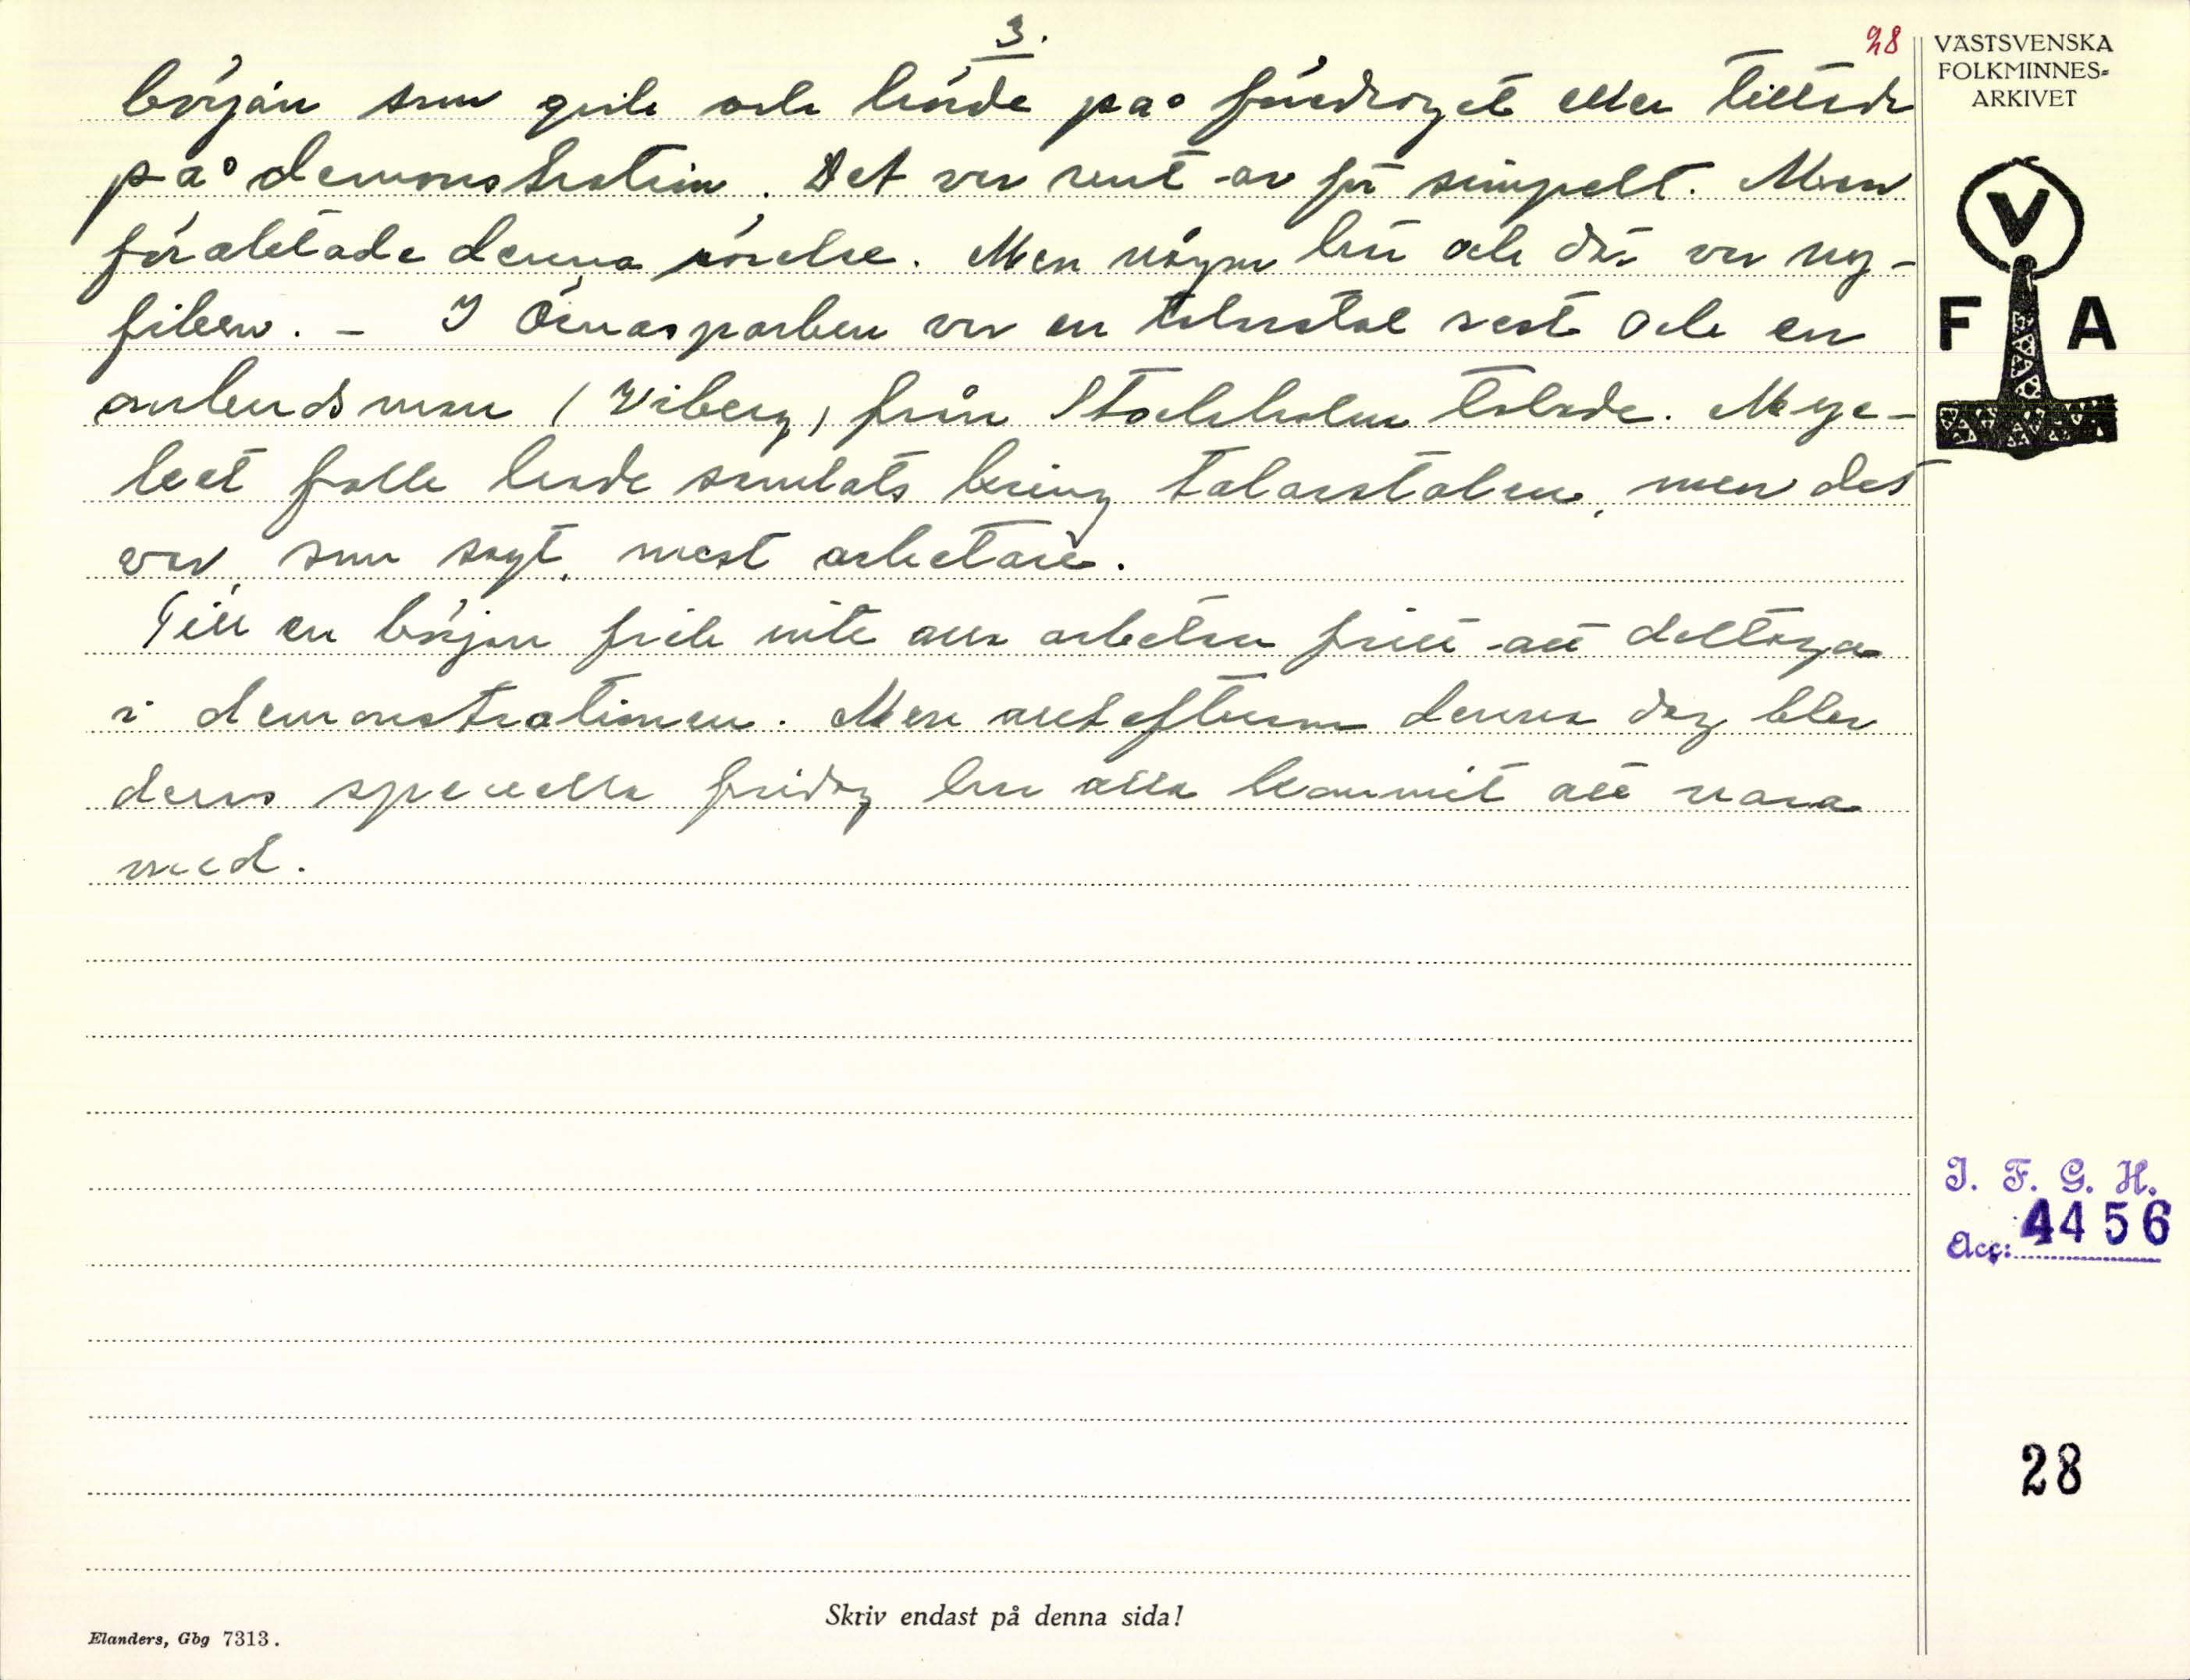 3.
28
början som gick och hörde på föredraget eller tittade
på demonstration. Det var rent av för simpelt. Man
föraktade denna rörelse. Men någon här och där var ny-
fiken. - I Örnäsparken var en talarstol rest och en
ombudsman (Viberg) från Stockholm talade. Myc-
ket folk hade samlats kring talarstolen, men det
var, som sagt, mest arbetare.
Till en början fick inte alla arbetare fritt att deltaga
i demonstrationen. Men allteftersom denna dag blev
deras speciella fridag har alla kommit att vara
med.
VÄSTSVENSKA
FOLKMINNES-
ARKIVET
V
F A
I. F. G. H.
Acc: 4456
28
Skriv endast på denna sida!
Elanders, Gbg 7313.